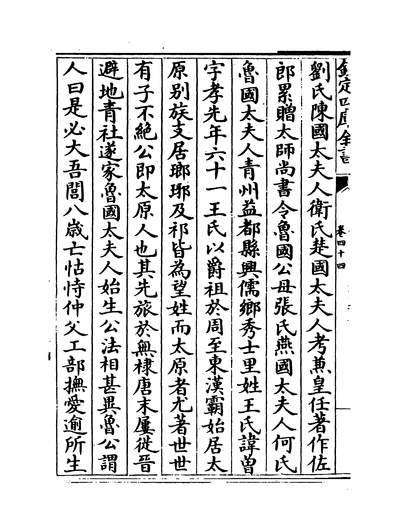 欽定四庫全書
卷四十四
劉氏陳國太夫人衛氏楚國太夫人考兼皇任著作佐
郎累贈太師尚書令魯國公母張氏燕國太夫人何氏
魯國太夫人青州益都縣興儒鄉秀士里姓王氏諱曾
字孝先年六十一王氏以爵祖於周至東漢霸始居太
原别族支居瑯琊及祁皆為望姓而太原者尤著世世
有子不絶公即太原人也其先旅於無棣唐末屢徙晉
避地青社遂家魯國太夫人始生公法相甚異魯公謂
人曰是必大吾閭八歳亡怙恃仲父工部撫愛逾所生